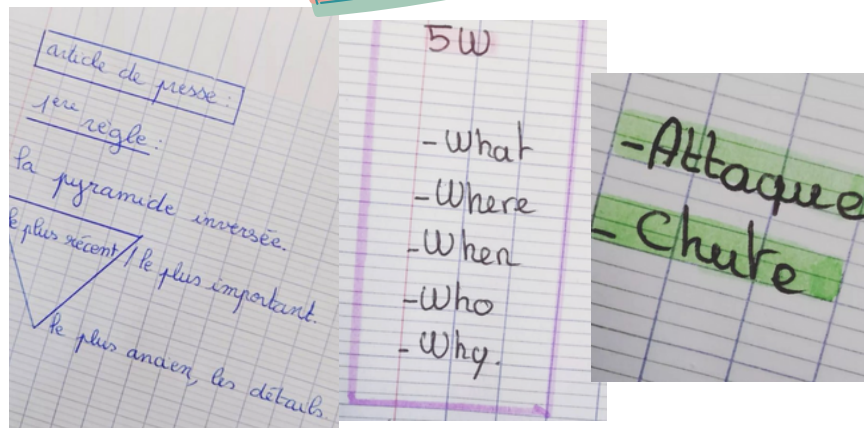 article de presse :
1ère règle :
la pyramide inversée.
le plus récent / le plus important.
le plus ancien, les détails.
5W
- What
- Where
- When
- Who
- Why.
- Attaque
- Chute